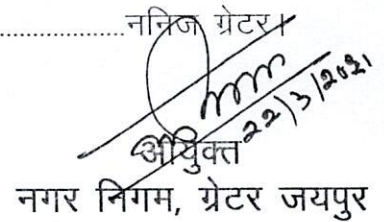 ....................ननिज ग्रेटर।
22/3/2021
आयुक्त
नगर निगम, ग्रेटर जयपुर